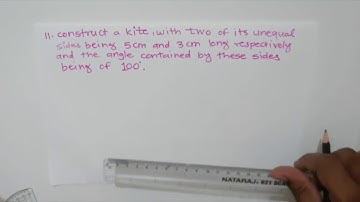 11. construct a kite, with two of its unequal
sides being 5cm and 3cm long respectively
and the angle contained by these sides
being of 100°.
NATARAJ